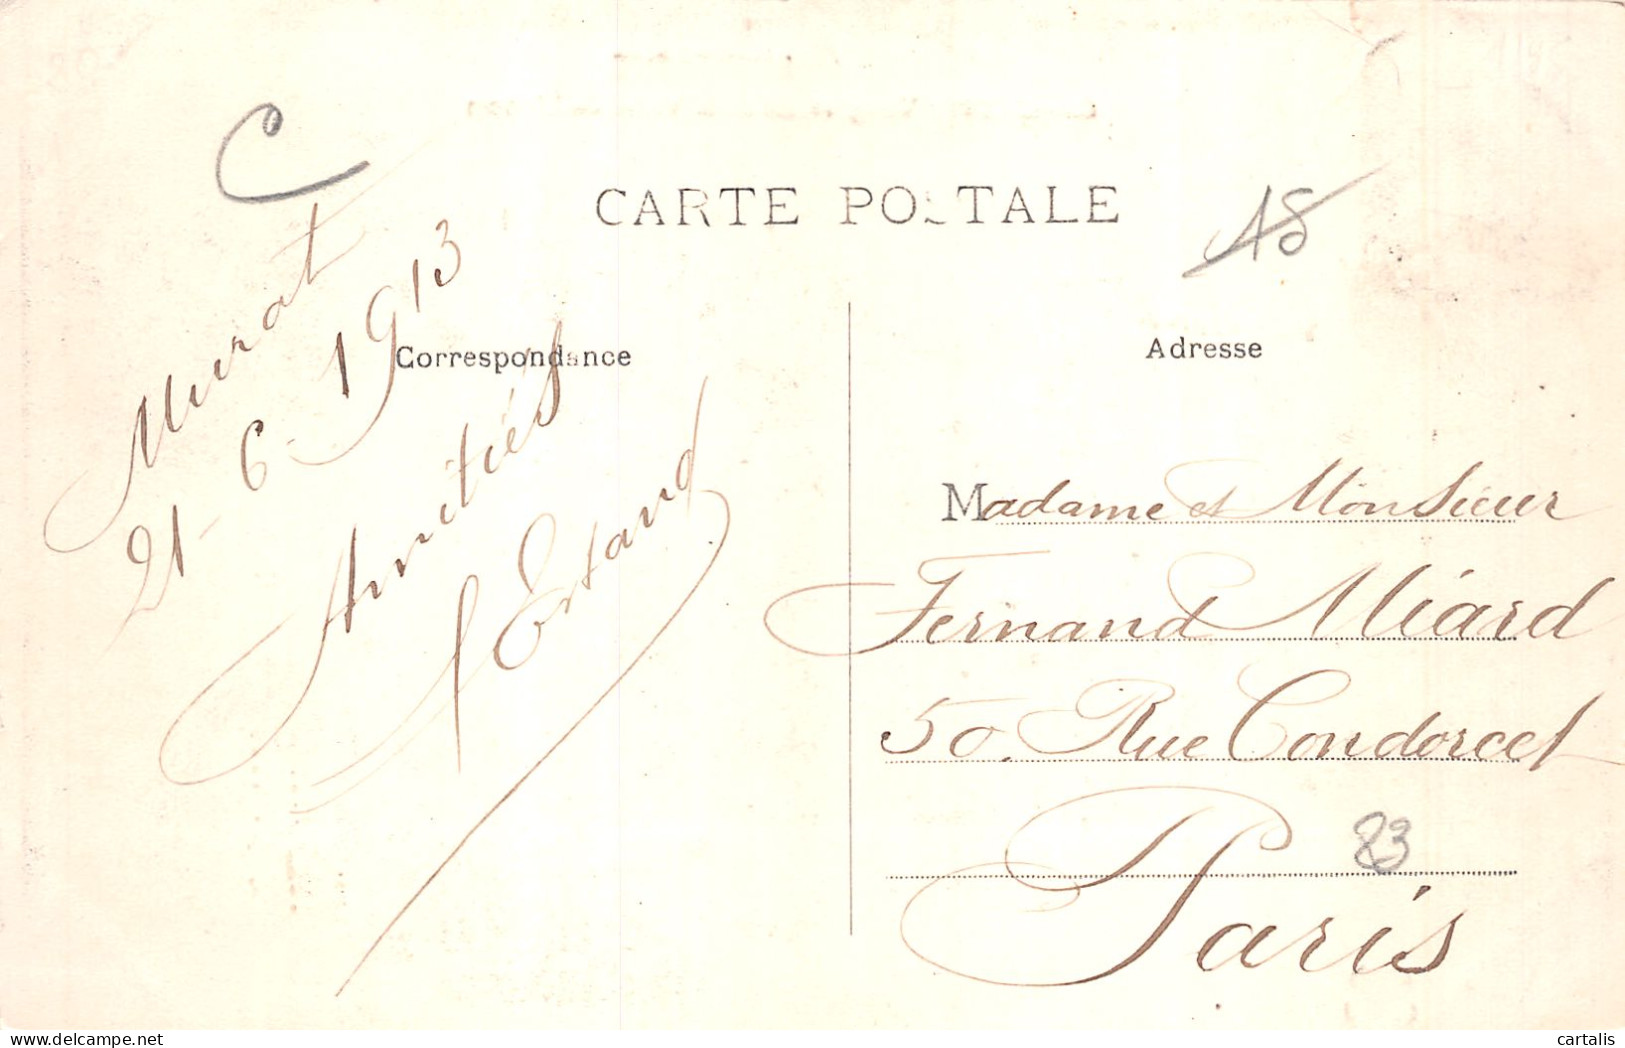 C
CARTE POSTALE
18
Murat
21-6-1913
Correspondance
Amitiés
Adresse
Madame et Monsieur
Fernand Miard
50, Rue Condorcet
83
Paris
cartalis